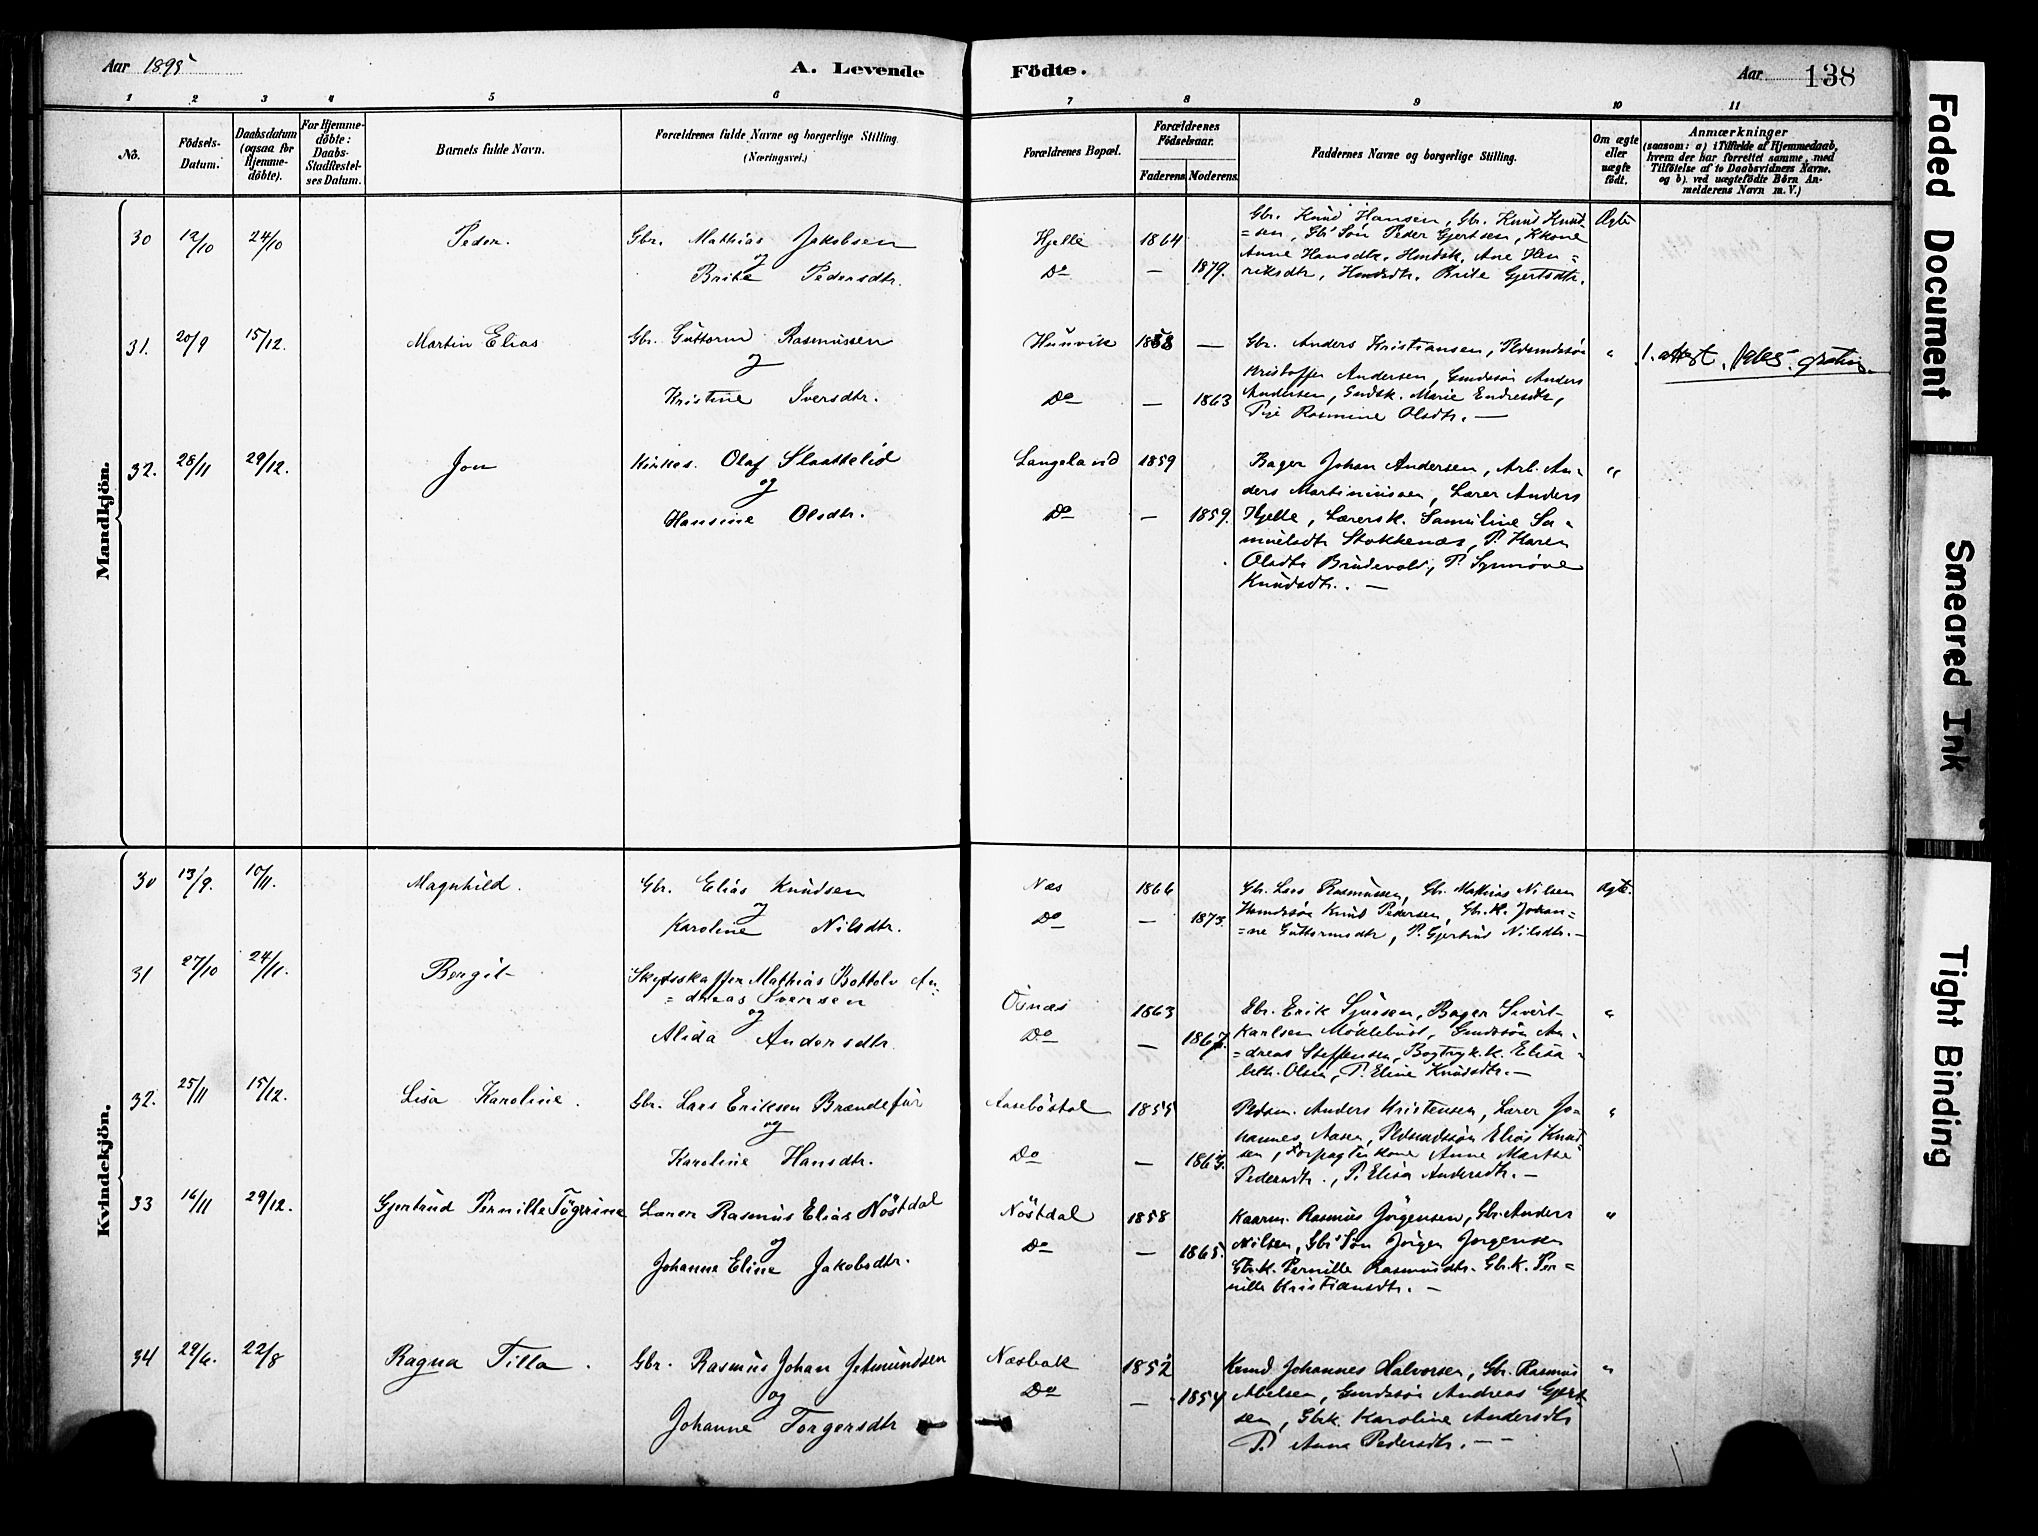 Aar 1895
A. Levende
Födte.
Aar
138
1 2 3 4 5 6 7 8 9 10 11
No.
Födsels-
Datum.
Daabsdatum
(ogsaa for
Hjemme-
döbte).
For Hjemme-
döbte:
Daabs-
Stadfæstel-
ses Datum.
Barnets fulde Navn.
Forældrenes fulde Navne og borgerlige Stilling
(Næringsvei.)
Forældrenes Bopæl.
Forældrenes
Födselsaar.
Faderens. Moderens.
Faddernes Navne og borgerlige Stilling.
Om ægte
eller
uægte
födt.
Anmærkninger
(saasom: a) i Tilfælde af Hjemmedaab,
hvem der har forrettet samme, med
Tilföielse af to Daabsvidners Navne.
og b) ved uægtefödte Börn An-
melderens Navn m. V.)
Mandkjön.
30 12/10 24/10 Peder. Gbr. Mathias Jakobsen
og
Brite Pedersdtr.
Hjelle 1864
Do — 1879.
Gbr. Knud Hansen, Gbr. Knud Knud-
=sen, Gbr Sön Peder Gjertsen, Kkone
Anne Hansdtr. Ane Hen-
riksdtr, Brite Gjertsdtr.
Ægte
31. 20/9 15/12. Martin Elias Gbr. Guttorm Rasmussen
og
Kristine Iversdtr.
Hunvik 1858 —
Do — 1863
Gbr. Anders Kristiansen,
Kristoffer Andersen, Anders
Andersen, Marie Endresdtr,
Pige Rasmine Olsdtr. —
"
1. attest 1965. gratis.
32. 28/11 29/12. Jon Kirkes. Olaf Slaattelid
og
Hansine Olsdtr.
Langelavid 1859
Do — 1859.
Bager Johan Andersen, Arb. An-
ders Martinussen, Lærer Anders
Hjelle, Lærersk. Samuline Sa-
muelsdtr Stokkenæs, P. Karen
Olsdtr Brudevold, P. Synnöve
Knudsdtr. —
"
Kvindekjön.
30 13/9. 10/11. Magnhild. Gbr. Elias Knudsen
og
Karoline Nilsdtr.
Næs 1866
Do — 1873.
Gbr. Lars Rasmussen, Gbr. Mathias Nilsen
Knud Pedersen, Gbr.K. Johan=
=ne Guttormsdtr, P. Gjertrud Nilsdtr. —
Ægte.
31 27/10 24/11. Bergit Skydsskaffer Mathias Bottolv An-
=dreas Iversen
og
Alida Andersdtr.
Osnæs 1863
Do — 1867.
Gbr. Erik Sjursen, Bager Sivert
Karlsen Möklebust, An-
=dreas Steffensen, Bogtryk.k. Elisa-
beth Olsen, P. Eline Knudsdtr. —
"
32. 25/11 15/12. Lisa Karoline. Gbr. Lars Eriksen Brændefur
og
Karoline Hansdtr.
Aaseböstöl 1855
Do — 1863.
Anders Kristensen, Lærer Jo-
hannes Aasen, Elias Knud-
sen, Forpagterkone Anne Marthe
Pedersdtr., P. Elisa Andersdtr. —
"
33 16/11 29/12. Gjertrud Pernille Tögerine Lærer Rasmus Elias Nöstdal
og
Johanne Eline Jakobsdtr.
Nöstdal 1858
Do — 1865.
Kaarm. Rasmus Jörgensen, Gbr. Anders
Nilsen, Gbr Sön Jörgen Jörgensen
Gbr.K. Pernille Rasmusdtr. Gbr.K. Per=
nille Kristiansdtr. —
"
34 29/6. 22/8 Ragna Tilla. Gbr. Rasmus Johan Jetmundsen
og
Johanne Torgersdtr
Næsbak 1852
Do — 1854
Johannes Halvorsen, Gbr. Rasmus
Abelsen, Andreas Gjert-
sen, Gbrk. Karoline Andersdtr
P. Anna Pedersdtr. —
"
Faded Document
Smeared Ink
Tight Binding